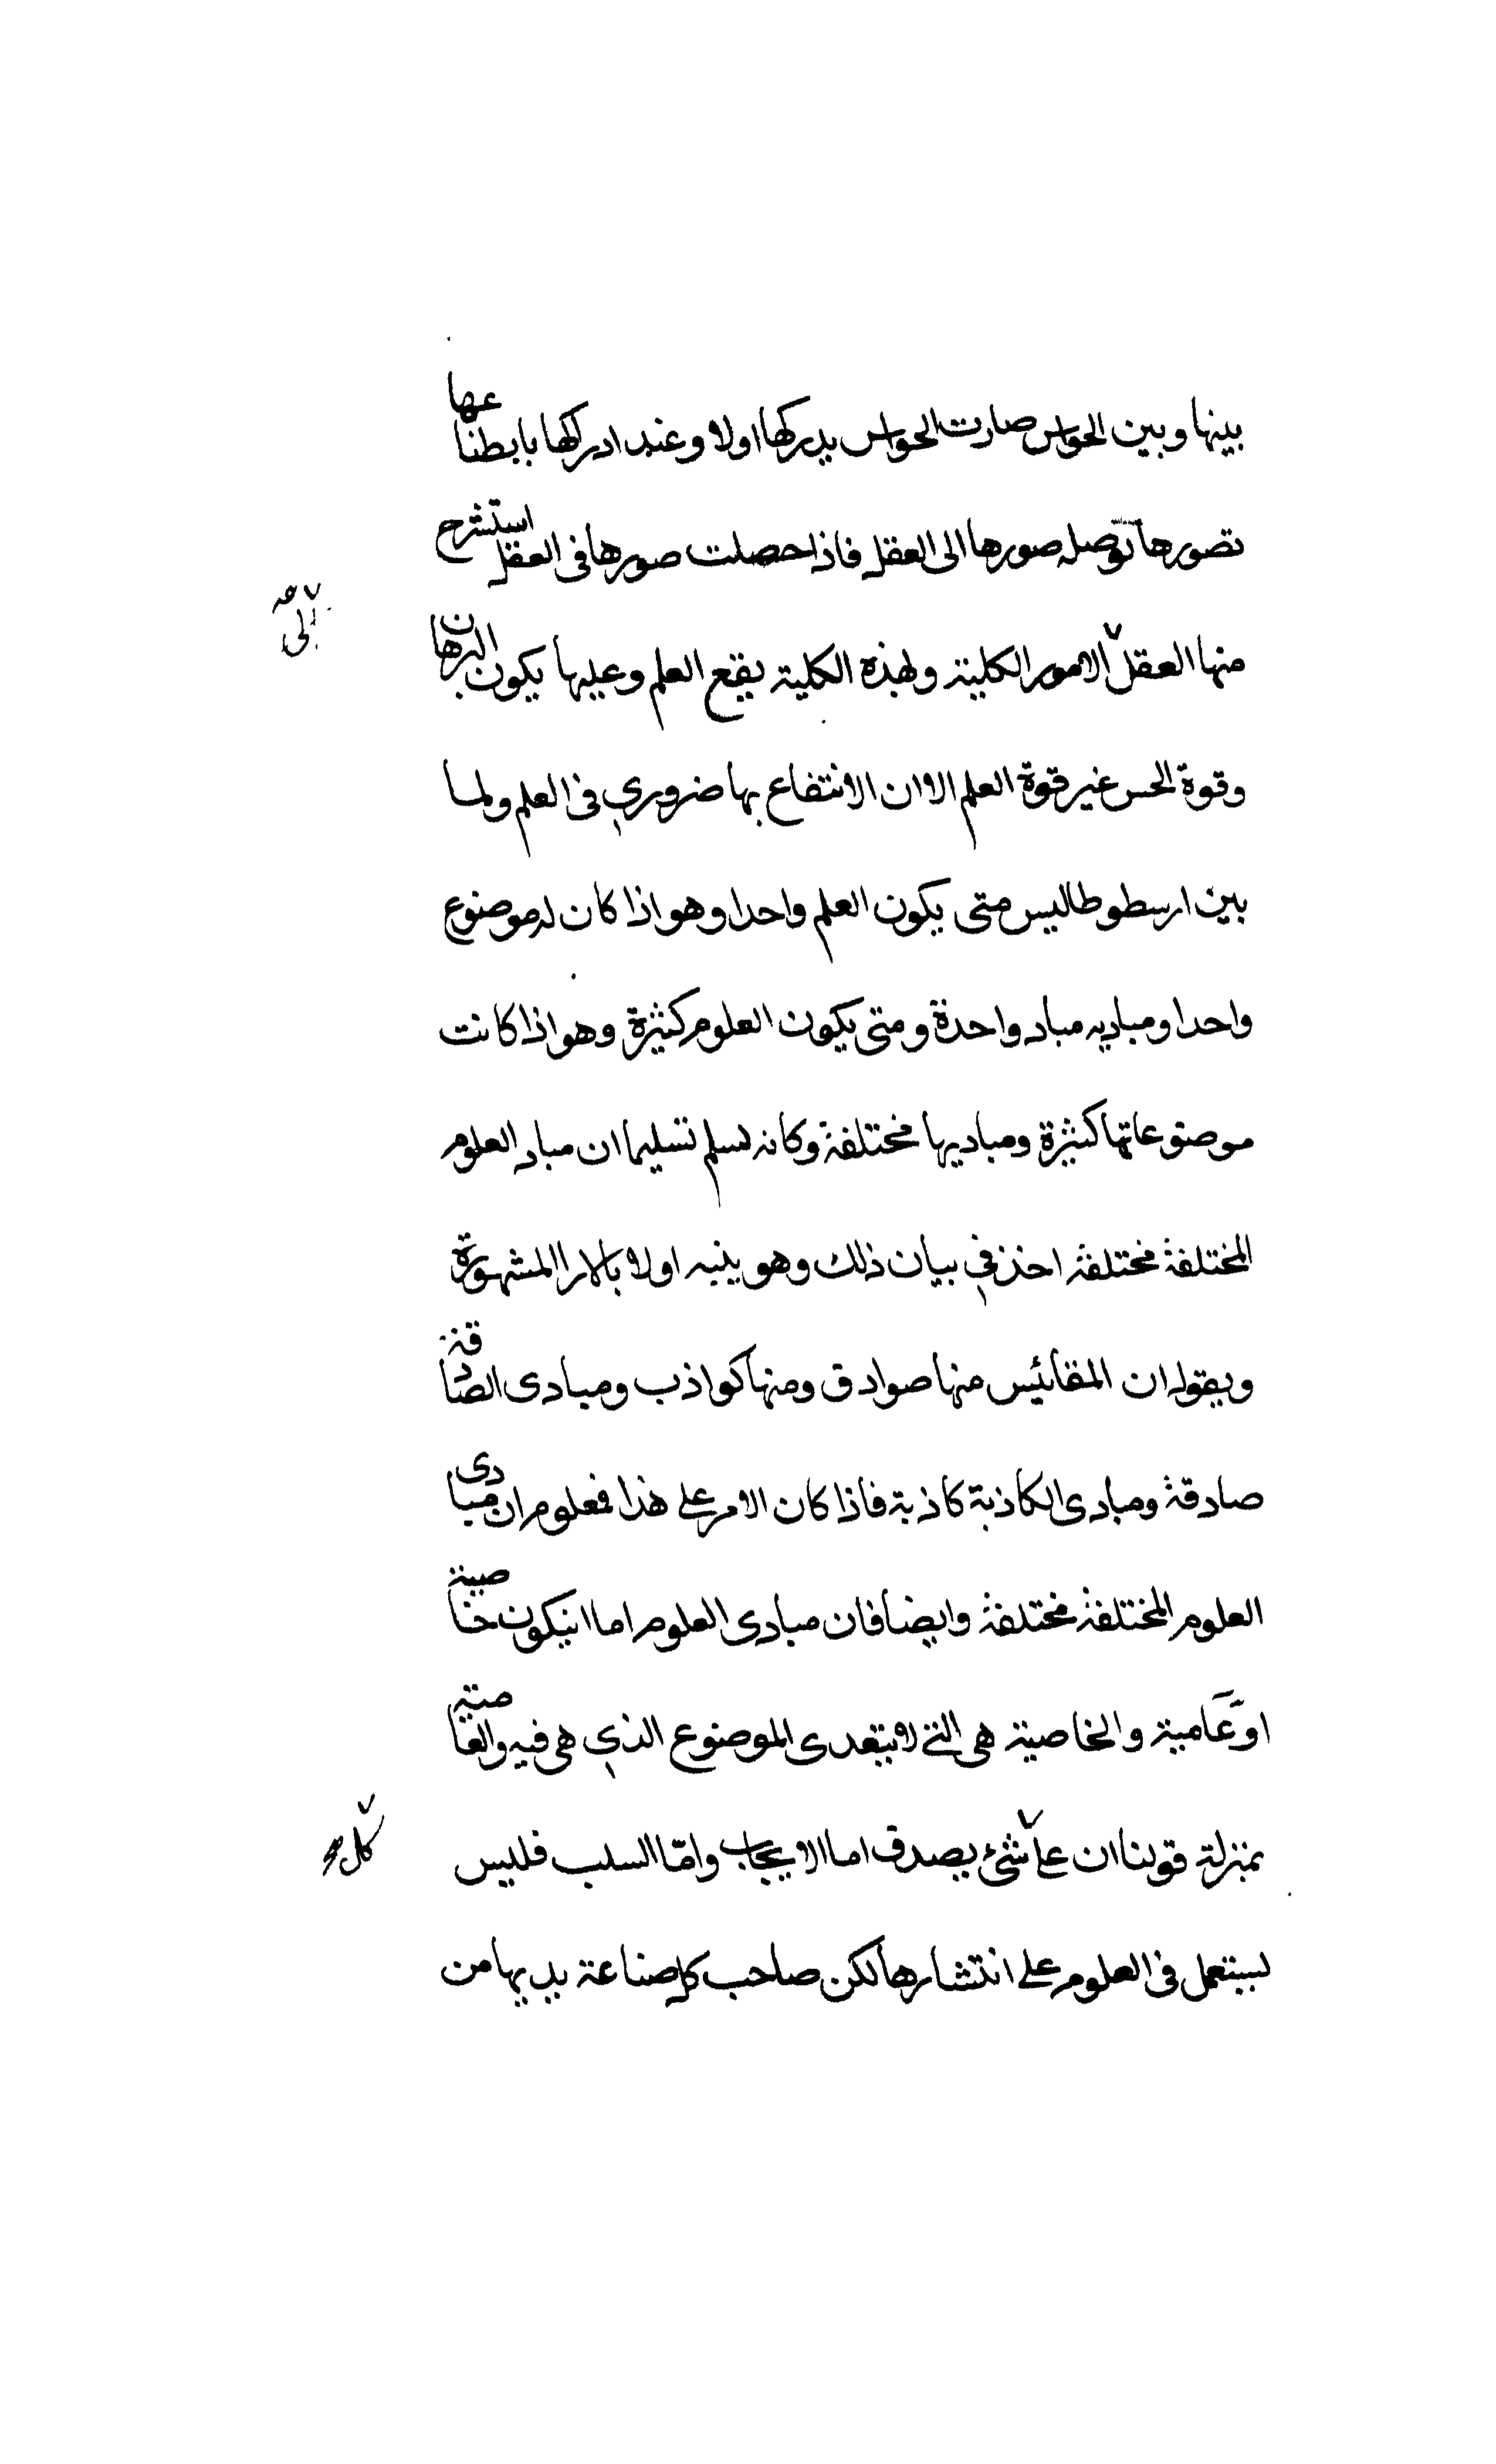 بينها وبين الحواس صارت الحواس يدركها اولا وعند ادراكها بابطنا عها
تصورها توصله صورها الى العقل فاذا حصلت صورها فى العقل استشرح
منها العقل الامور الكلية ولهذه الكلية يقع العلم وعليها يكون البرهان
وقوة الحس غير قوة العلم الا ان الانتفاع بها ضروري فى العلم ولما
بين ارسطوطاليس متى يكون العلم واحدا وهو اذا كان له موضوع
واحدا ومباديه مباد واحدة ومتى يكون العلوم كثيرة وهو اذا كانت
موضوعاتها كثيرة ومباديها مختلفة وكانه لسلم تسليما ان مباد العلوم
المختلفة مختلفة اخذ في بيان ذلك وهو ينبه اولا بالارا المشهورة
ويقول ان المقائيس منها صوادق ومنها كواذب ومبادى الصادقة
صادقة ومبادى الكاذبة كاذبة فاذا كان الامر على هذا فمعلوم ان مبادى
العلوم المختلفة مختلفة وايضا فان مبادى العلوم اما انيكون خاصية
او عامية والخاصية هى التى لا يتعدى الموضوع الذي هى فيه والعامية
بمنزلة قولنا ان على شئ يصدق اما الايجاب وامّا السلب فليس
يستعمل فى العلوم على انتشارها لكن صاحب كل صناعة يديها من
كل صح